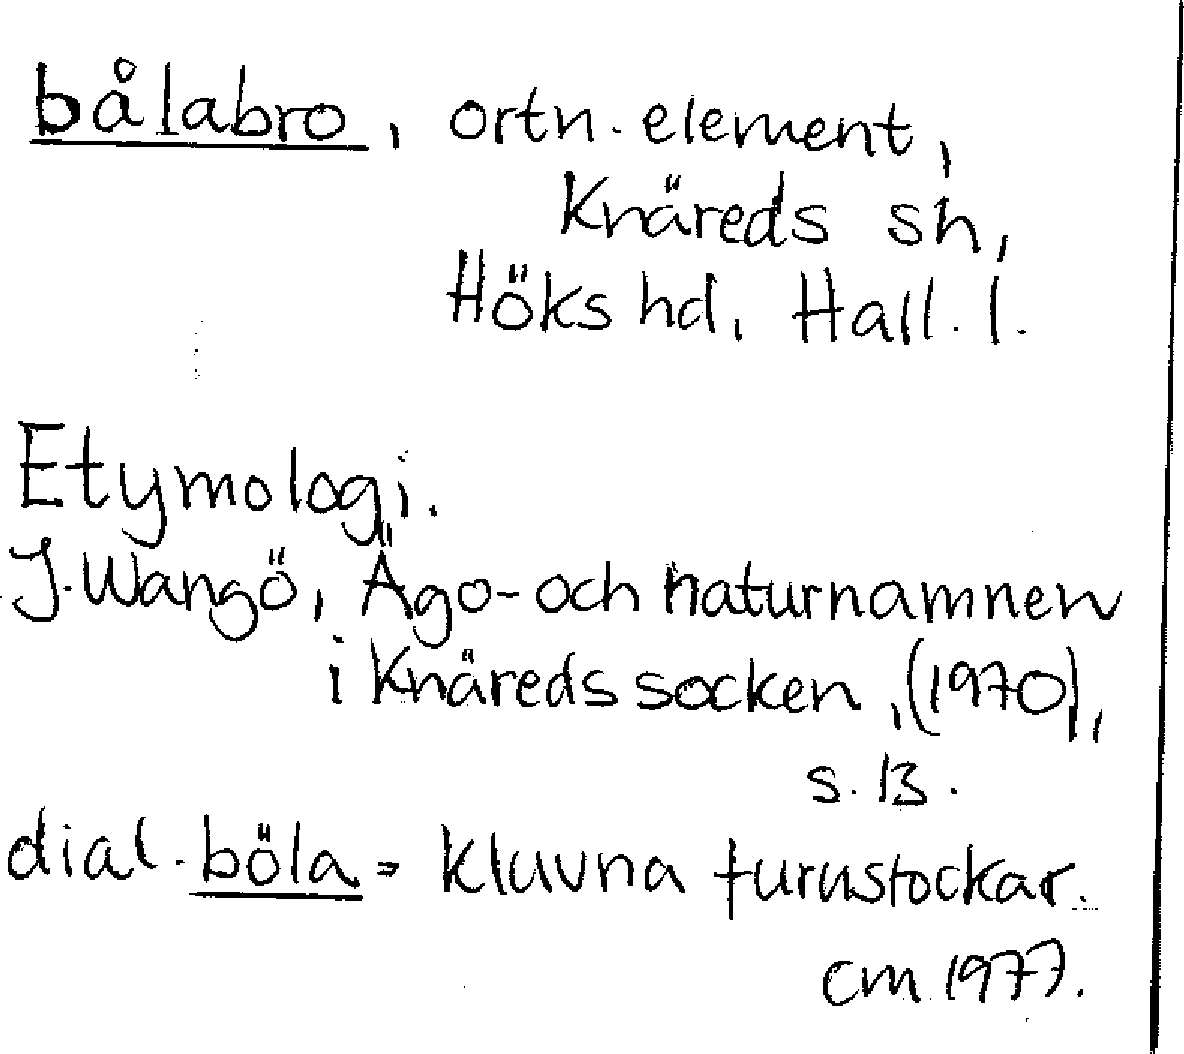 bålabro, ortn. element,
Knäreds sn,
Höks hd, Hall. l.
Etymologi.
J. Wangö, Ägo- och naturnamnen
i Knäreds socken, (1970),
s. 13.
dial. böla = kluvna furustockar.
CM 1977.